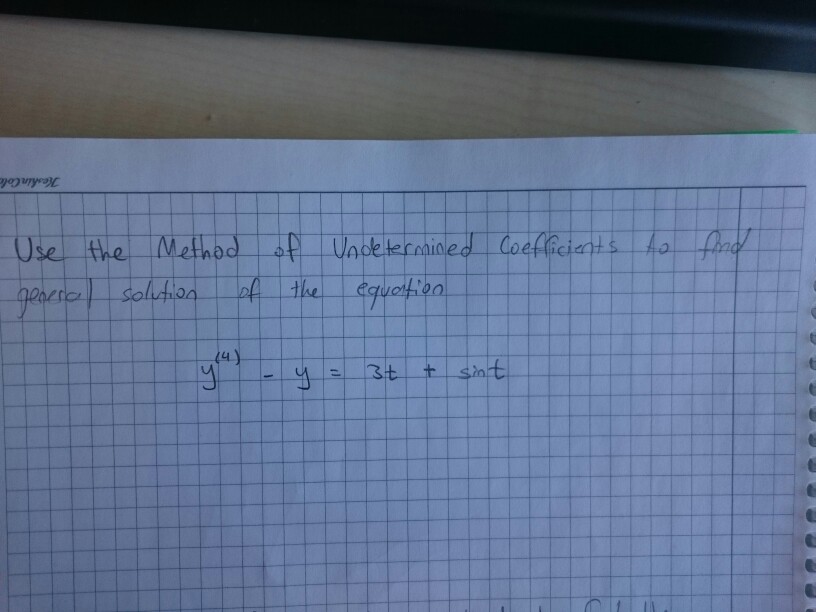 Use the Method of Undetermined Coefficients to find
general solution of the equation
y⁽⁴⁾ - y = 3t + sint